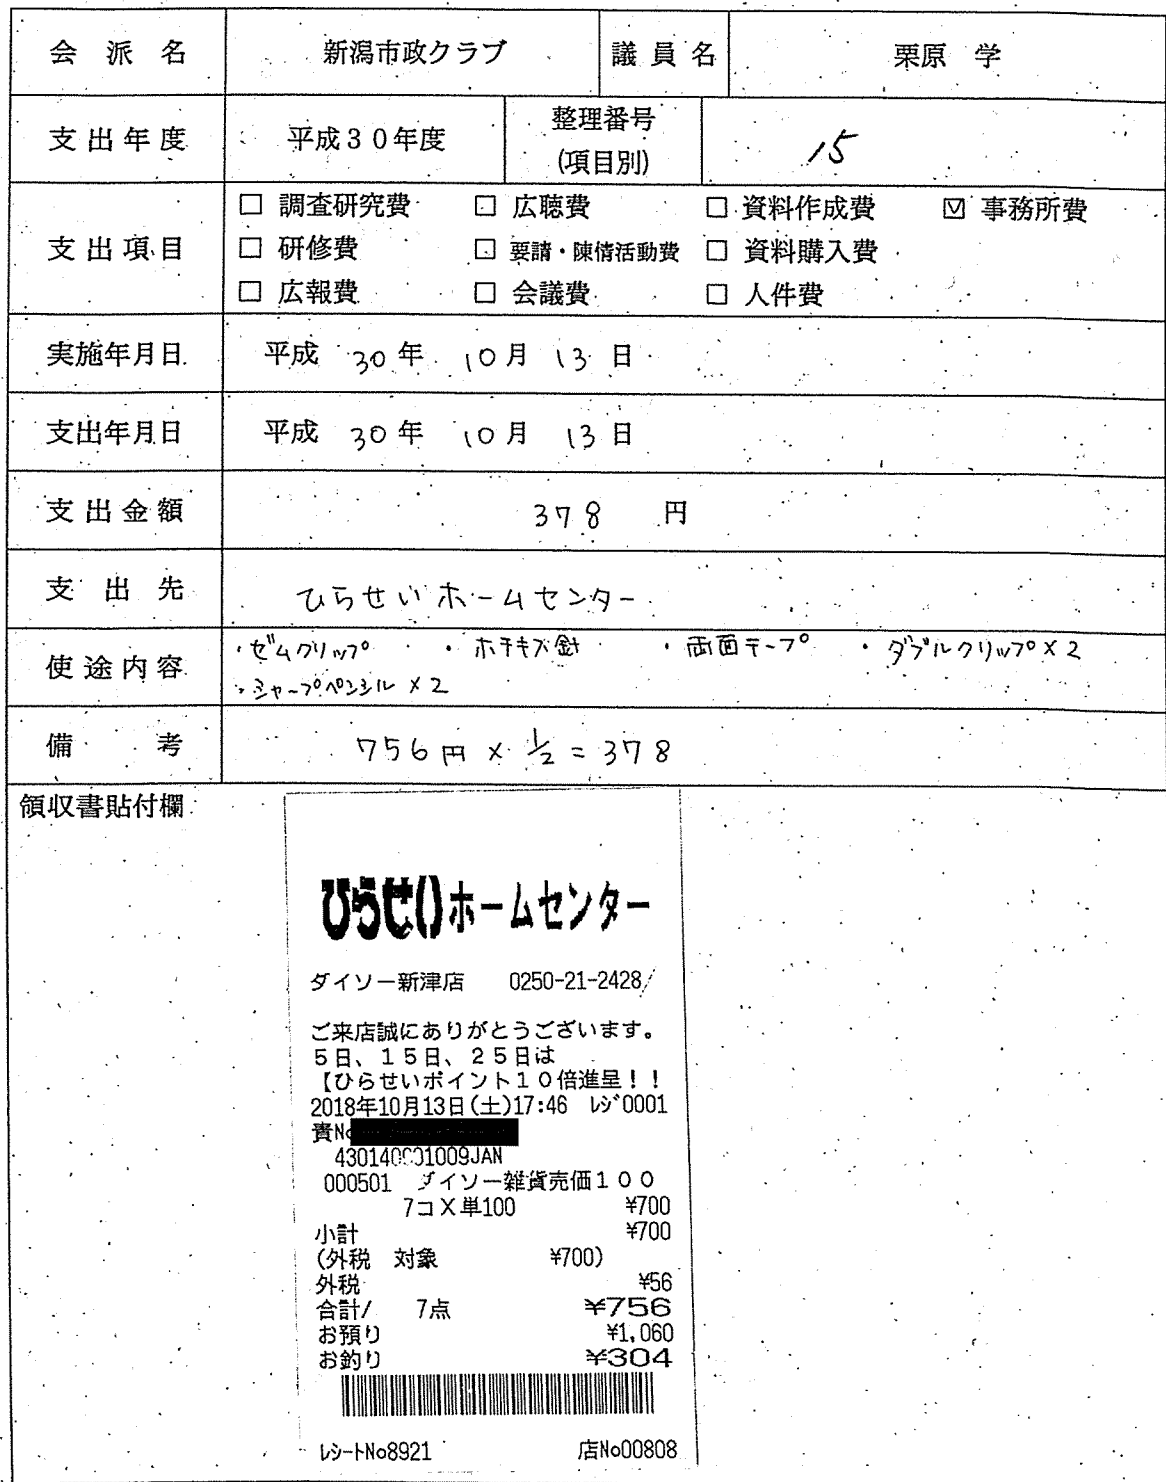 会派名 新潟市政クラブ 議員名 栗原 学
支出年度 平成30年度 整理番号 (項目別) 15
支出項目
☐ 調査研究費 ☐ 広聴費 ☐ 資料作成費 ☑ 事務所費
☐ 研修費 ☐ 要請・陳情活動費 ☐ 資料購入費
☐ 広報費 ☐ 会議費 ☐ 人件費
実施年月日 平成 30年 10月 13日
支出年月日 平成 30年 10月 13日
支出金額 378 円
支出先 ひらせいホームセンター
使途内容 ・ゼムクリップ ・ホチキス針 ・両面テープ ・ダブルクリップ×2
・シャープペンシル×2
備考 756円×1/2=378
領収書貼付欄
ひらせいホームセンター
ダイソー新津店 0250-21-2428
ご来店誠にありがとうございます。
5日、15日、25日は
【ひらせいポイント10倍進呈!!
2018年10月13日(土)17:46 レジ0001
責No
JAN
000501 ダイソー雑貨売価100
7コX単100 ¥700
小計 ¥700
(外税 対象 ¥700)
外税 ¥56
合計/ 7点 ¥756
お預り ¥1,060
お釣り ¥304
レシートNo8921 店No00808